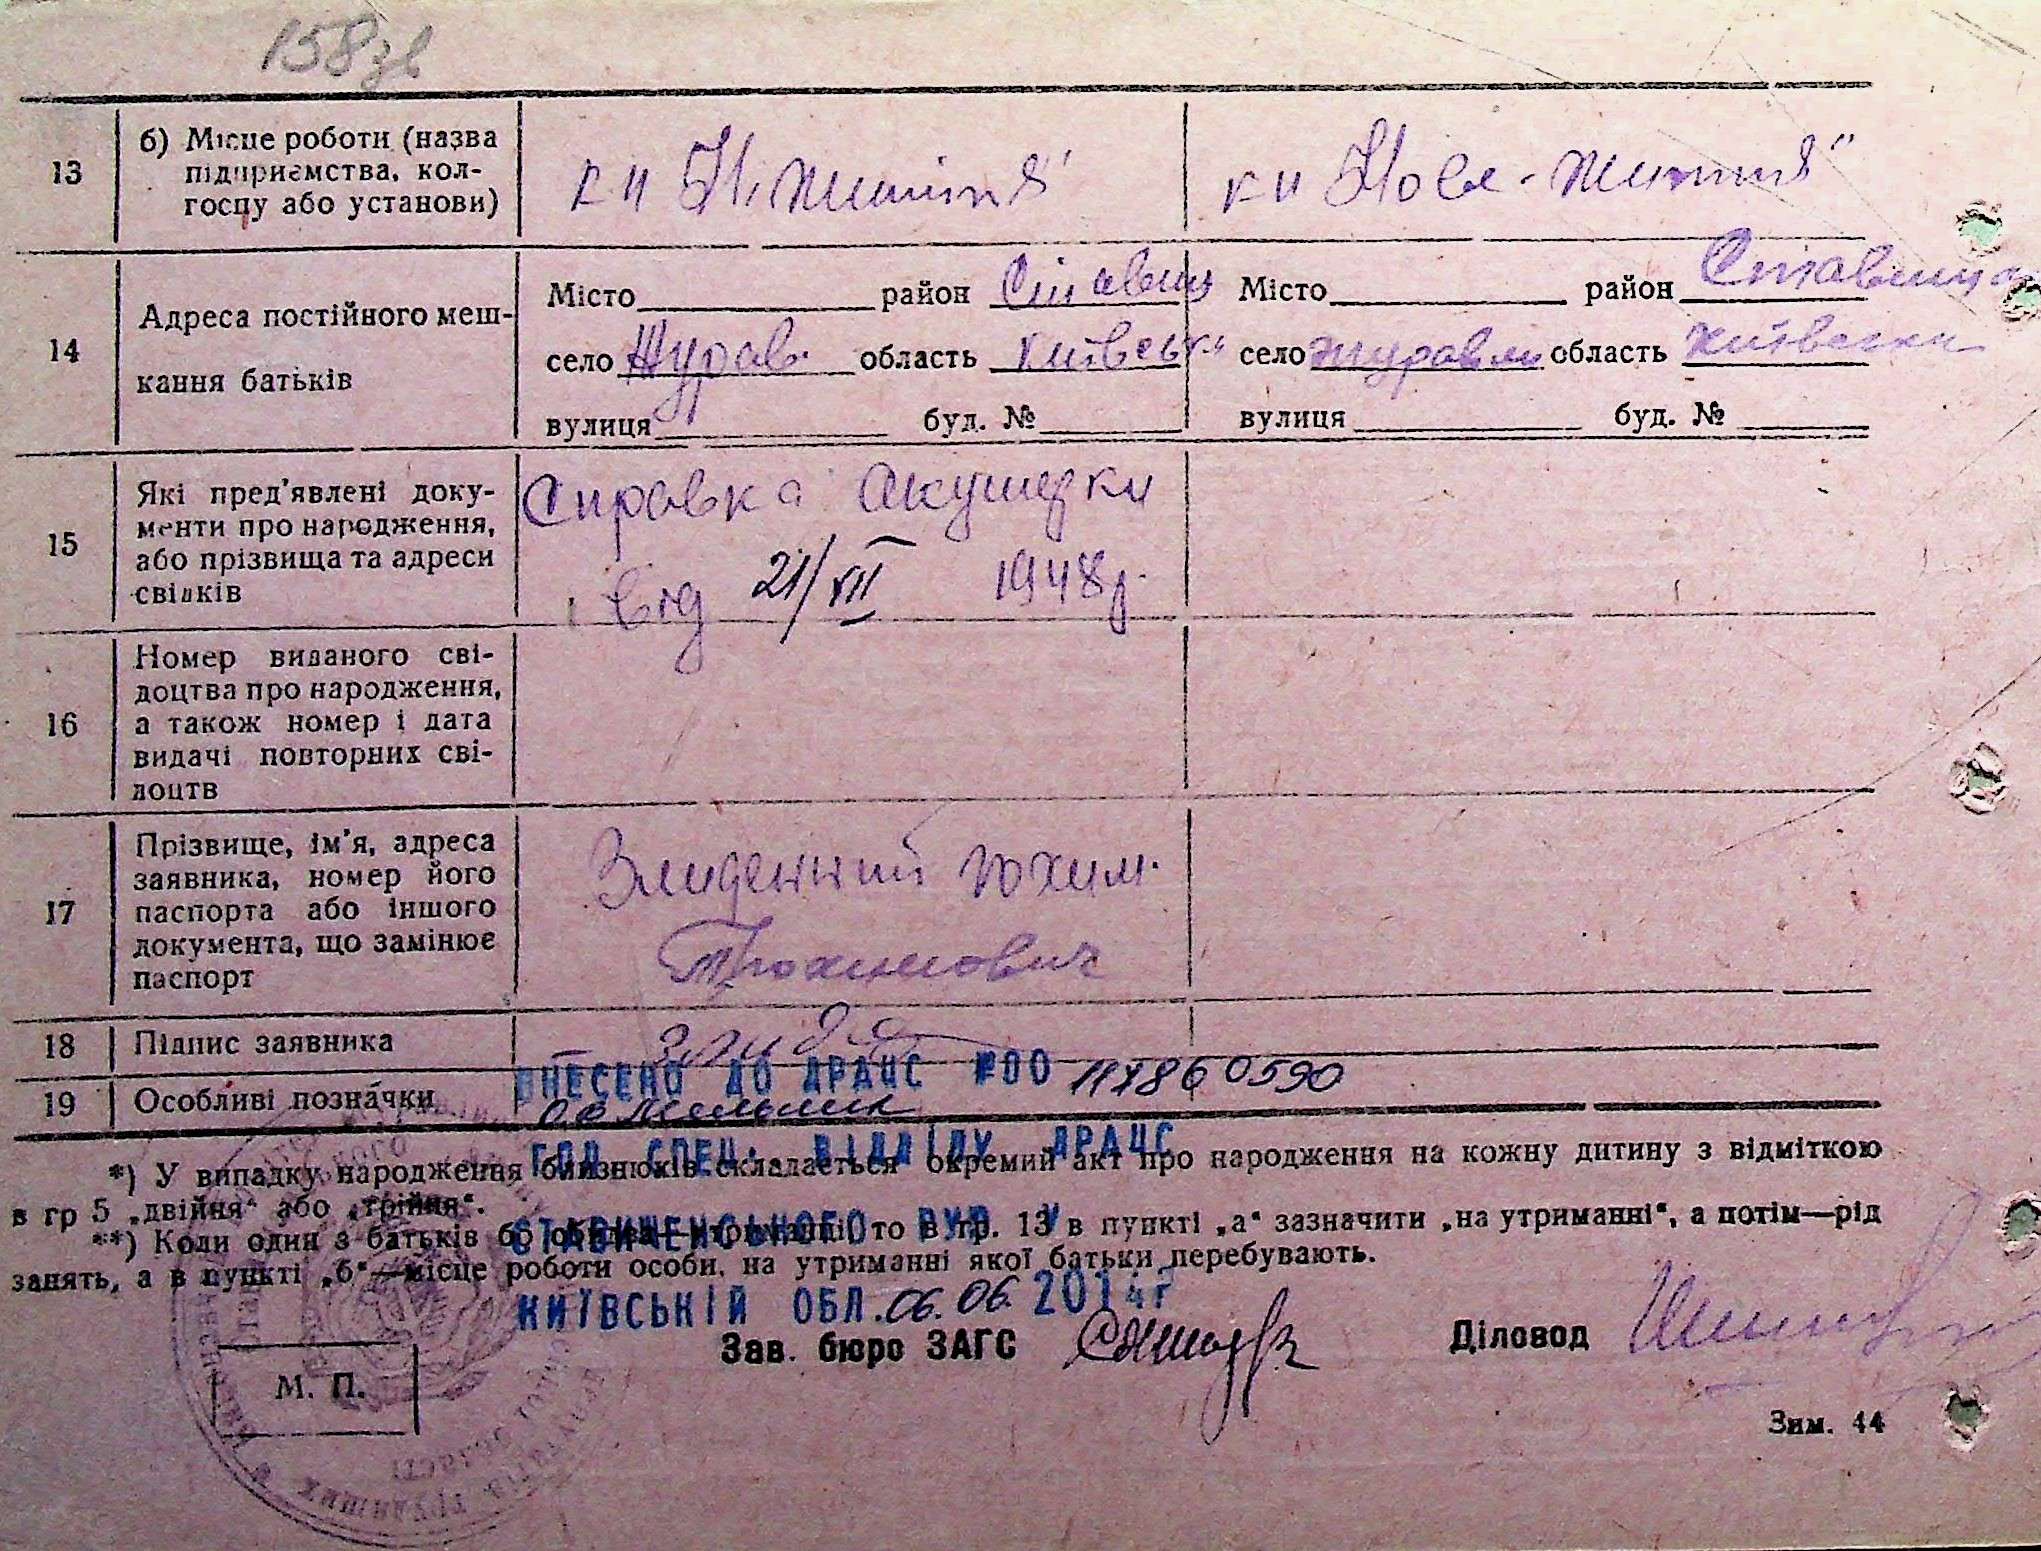 158зв
13
б) Місце роботи (назва
підприємства, кол-
госпу або установи)
к-п "Н. життя"
к-п "Нове-життя"
14
Адреса постійного меш-
кання батьків
Місто район Ставищ
село Журав. область Київськ.
вулиця буд. №
Місто район Ставища
село Журавли область Київська
вулиця буд. №
15
Які пред'явлені доку-
менти про народження,
або прізвища та адреси
свідків
Справка акушерки
від 21/XII 1948 р.
16
Номер виданого сві-
доцтва про народження,
а також номер і дата
видачі повторних сві-
доцтв
17
Прізвище, ім'я, адреса
заявника, номер його
паспорта або іншого
документа, що замінює
паспорт
Злиденний Юхим.
Трохимович
18
Підпис заявника
19
Особливі позначки
ВНЕСЕНО ДО ДРАЦС №00 117860590
О.В. Мельник
ГОЛ. СПЕЦ. ВІДДІЛУ ДРАЦС
*) У випадку народження близнюків складається окремий акт про народження на кожну дитину з відміткою
в гр 5 „двійня“ або „трійня“.
СТАВИЩЕНСЬКОГО РУЮ У
**) Коли один з батьків бо обидва—утриманці, то в гр. 13 в пункті „а“ зазначити „на утриманні“, а потім—рід
занять, а в пункті „б“—місце роботи особи, на утриманні якої батьки перебувають.
КИЇВСЬКІЙ ОБЛ. 06.06.2014 г
Зав. бюро ЗАГС
Діловод
М. П.
Зим. 44